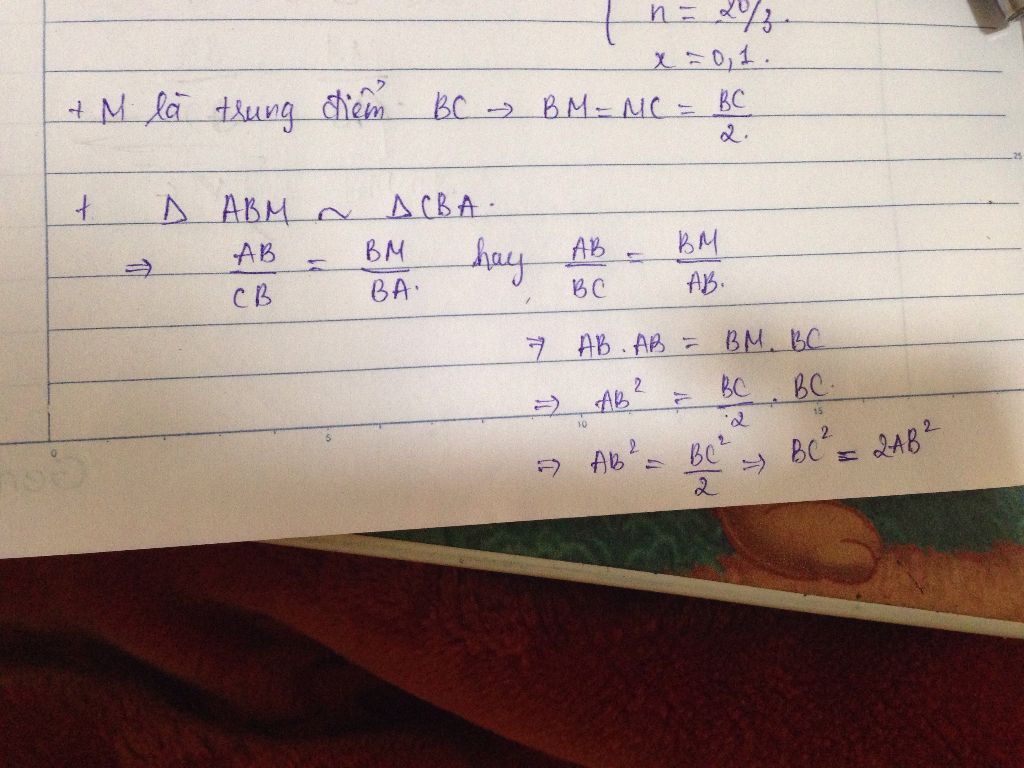 n = 20/3.
x = 0,1.
+ M là trung điểm BC → BM = MC = BC/2.
+ Δ ABM ~ ΔCBA.
⇒ AB/CB = BM/BA. hay AB/BC = BM/AB.
⇒ AB . AB = BM . BC
⇒ AB² = BC/2 . BC.
⇒ AB² = BC²/2 ⇒ BC² = 2AB²
0 5 10 15
25